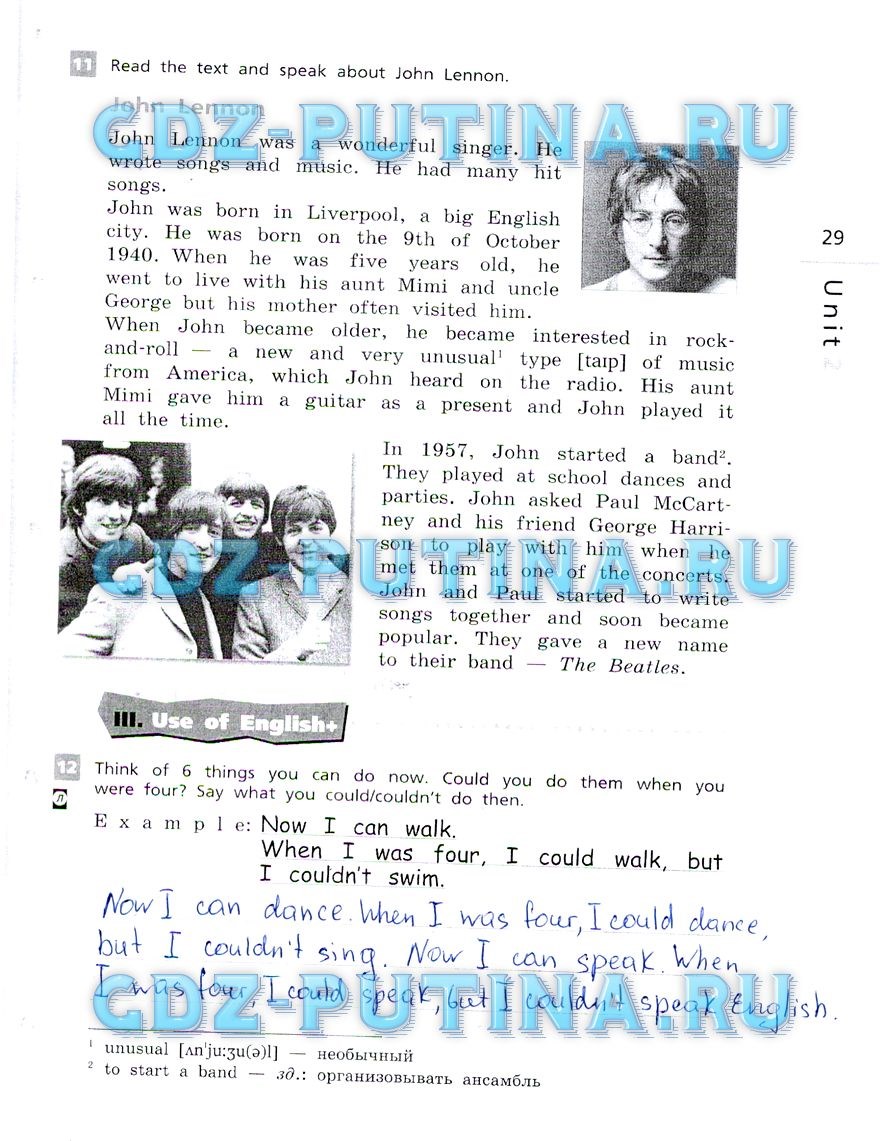 11 Read the text and speak about John Lennon.
John Lennon
GDZ-PUTINA.RU
John Lennon was a wonderful singer. He
wrote songs and music. He had many hit
songs.
John was born in Liverpool, a big English
city. He was born on the 9th of October
1940. When he was five years old, he
went to live with his aunt Mimi and uncle
George but his mother often visited him.
When John became older, he became interested in rock-
and-roll — a new and very unusual¹ type [taɪp] of music
from America, which John heard on the radio. His aunt
Mimi gave him a guitar as a present and John played it
all the time.
29
Unit 2
In 1957, John started a band².
They played at school dances and
parties. John asked Paul McCart-
ney and his friend George Harri-
son to play with him when he
met them at one of the concerts.
GDZ-PUTINA.RU
John and Paul started to write
songs together and soon became
popular. They gave a new name
to their band — The Beatles.
III. Use of English+
12 Think of 6 things you can do now. Could you do them when you
were four? Say what you could/couldn't do then.
Example: Now I can walk.
When I was four, I could walk, but
I couldn't swim.
Now I can dance. When I was four, I could dance,
but I couldn't sing. Now I can speak. When
I was four, I could speak, but I couldn't speak English.
GDZ-PUTINA.RU
¹ unusual [ʌn'ju:ʒu(ə)l] — необычный
² to start a band — зд.: организовывать ансамбль